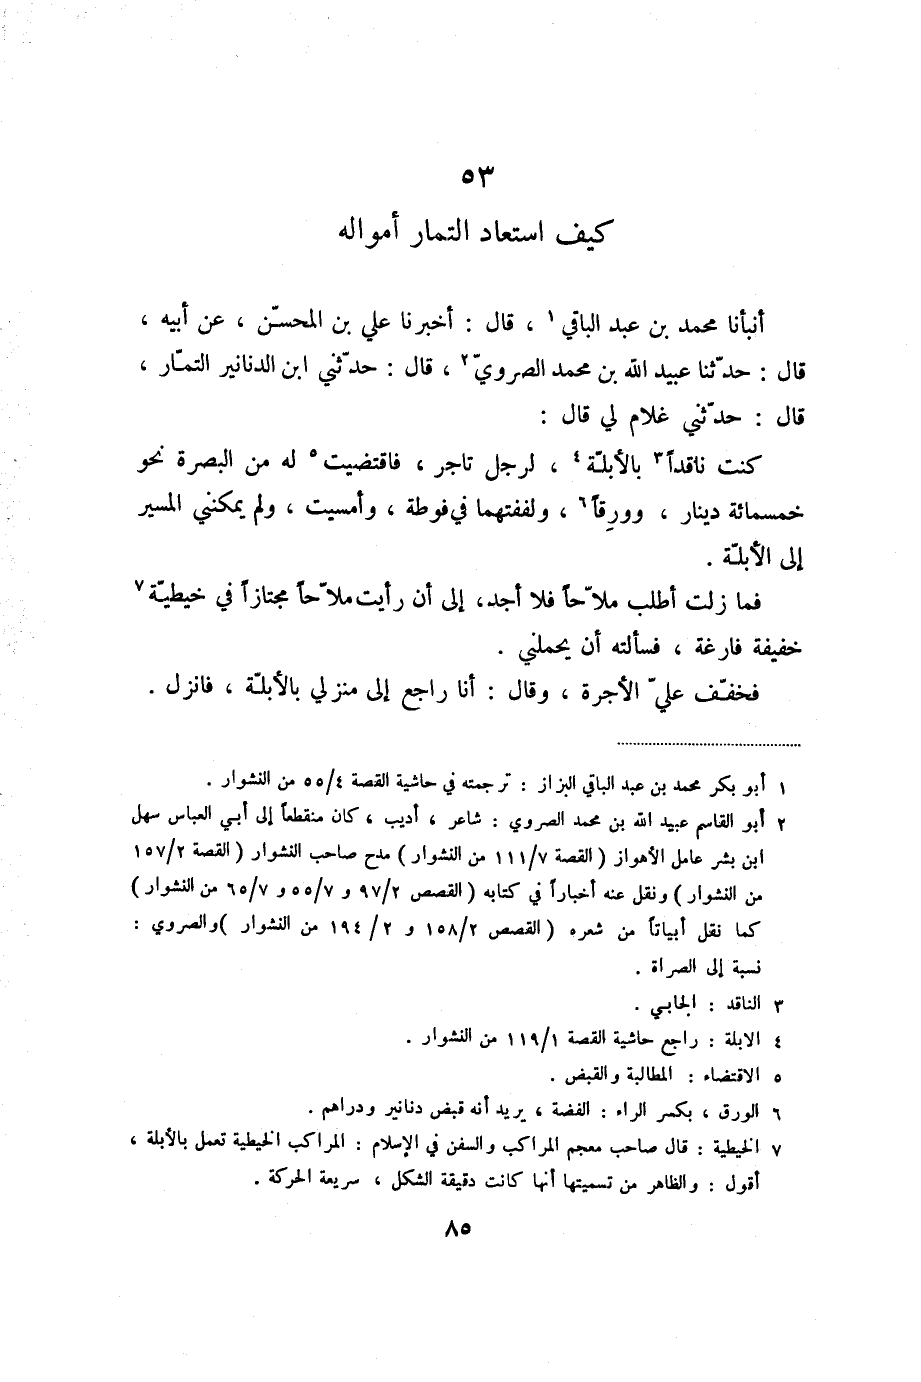 ٥٣
كيف استعاد التمار أمواله
أنبأنا محمد بن عبد الباقي ١ ، قال : أخبرنا علي بن المحسّن ، عن أبيه ،
قال : حدّثنا عبيد الله بن محمد الصرويّ ٢ ، قال : حدّثني ابن الدنانير التمّار ،
قال : حدّثني غلام لي قال :
كنت ناقداً ٣ بالأبلّة ٤ ، لرجل تاجر ، فاقتضيت ٥ له من البصرة نحو
خمسمائة دينار ، وورِقاً ٦ ، ولففتهما في فوطة ، وأمسيت ، ولم يمكنني المسير
إلى الأبلّة .
فما زلت أطلب ملاّحاً فلا أجد، إلى أن رأيت ملاّحاً مجتازاً في خيطيّة ٧
خفيفة فارغة ، فسألته أن يحملني .
فخفّف عليّ الأجرة ، وقال : أنا راجع إلى منزلي بالأبلّة ، فانزل .
١ أبو بكر محمد بن عبد الباقي البزاز : ترجمته في حاشية القصة ٥٥/٤ من النشوار .
٢ أبو القاسم عبيد الله بن محمد الصروي : شاعر ، أديب ، كان منقطعاً إلى أبي العباس سهل
ابن بشر عامل الأهواز ( القصة ١١١/٧ من النشوار ) مدح صاحب النشوار ( القصة ١٥٧/٢
من النشوار ) ونقل عنه أخباراً في كتابه ( القصص ٩٧/٢ و ٥٥/٧ و ٦٥/٧ من النشوار )
كما نقل أبياتاً من شعره ( القصص ١٥٨/٢ و ١٩٤/٢ من النشوار ) والصروي :
نسبة إلى الصراة .
٣ الناقد : الجابي .
٤ الابلة : راجع حاشية القصة ١١٩/١ من النشوار .
٥ الاقتضاء : المطالبة والقبض .
٦ الورق ، بكسر الراء : الفضة ، يريد أنه قبض دنانير ودراهم .
٧ الخيطية : قال صاحب معجم المراكب والسفن في الإسلام : المراكب الخيطية تعمل بالأبلة ،
أقول : والظاهر من تسميتها أنها كانت دقيقة الشكل ، سريعة الحركة .
٨٥